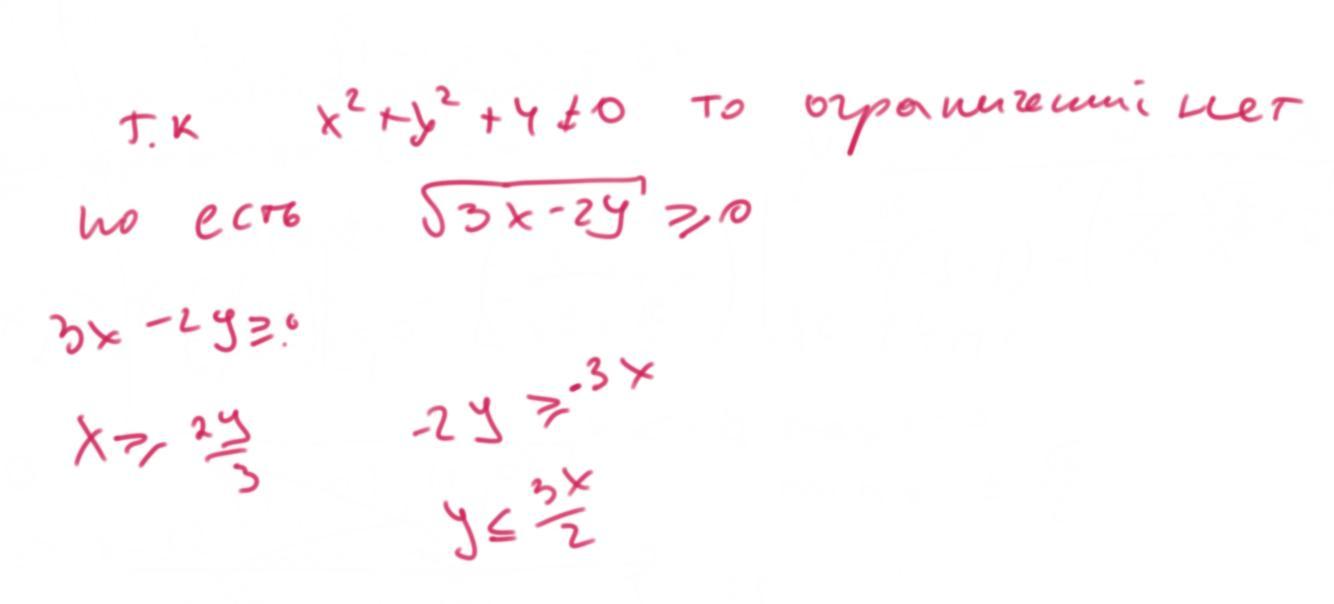 т.к x² + y² + 4 ≠ 0 то ограничений нет
но есть √3x - 2y ≥ 0
3x - 2y ≥ 0
x ≥ 2y/3
-2y ≥ -3x
y ≤ 3x/2